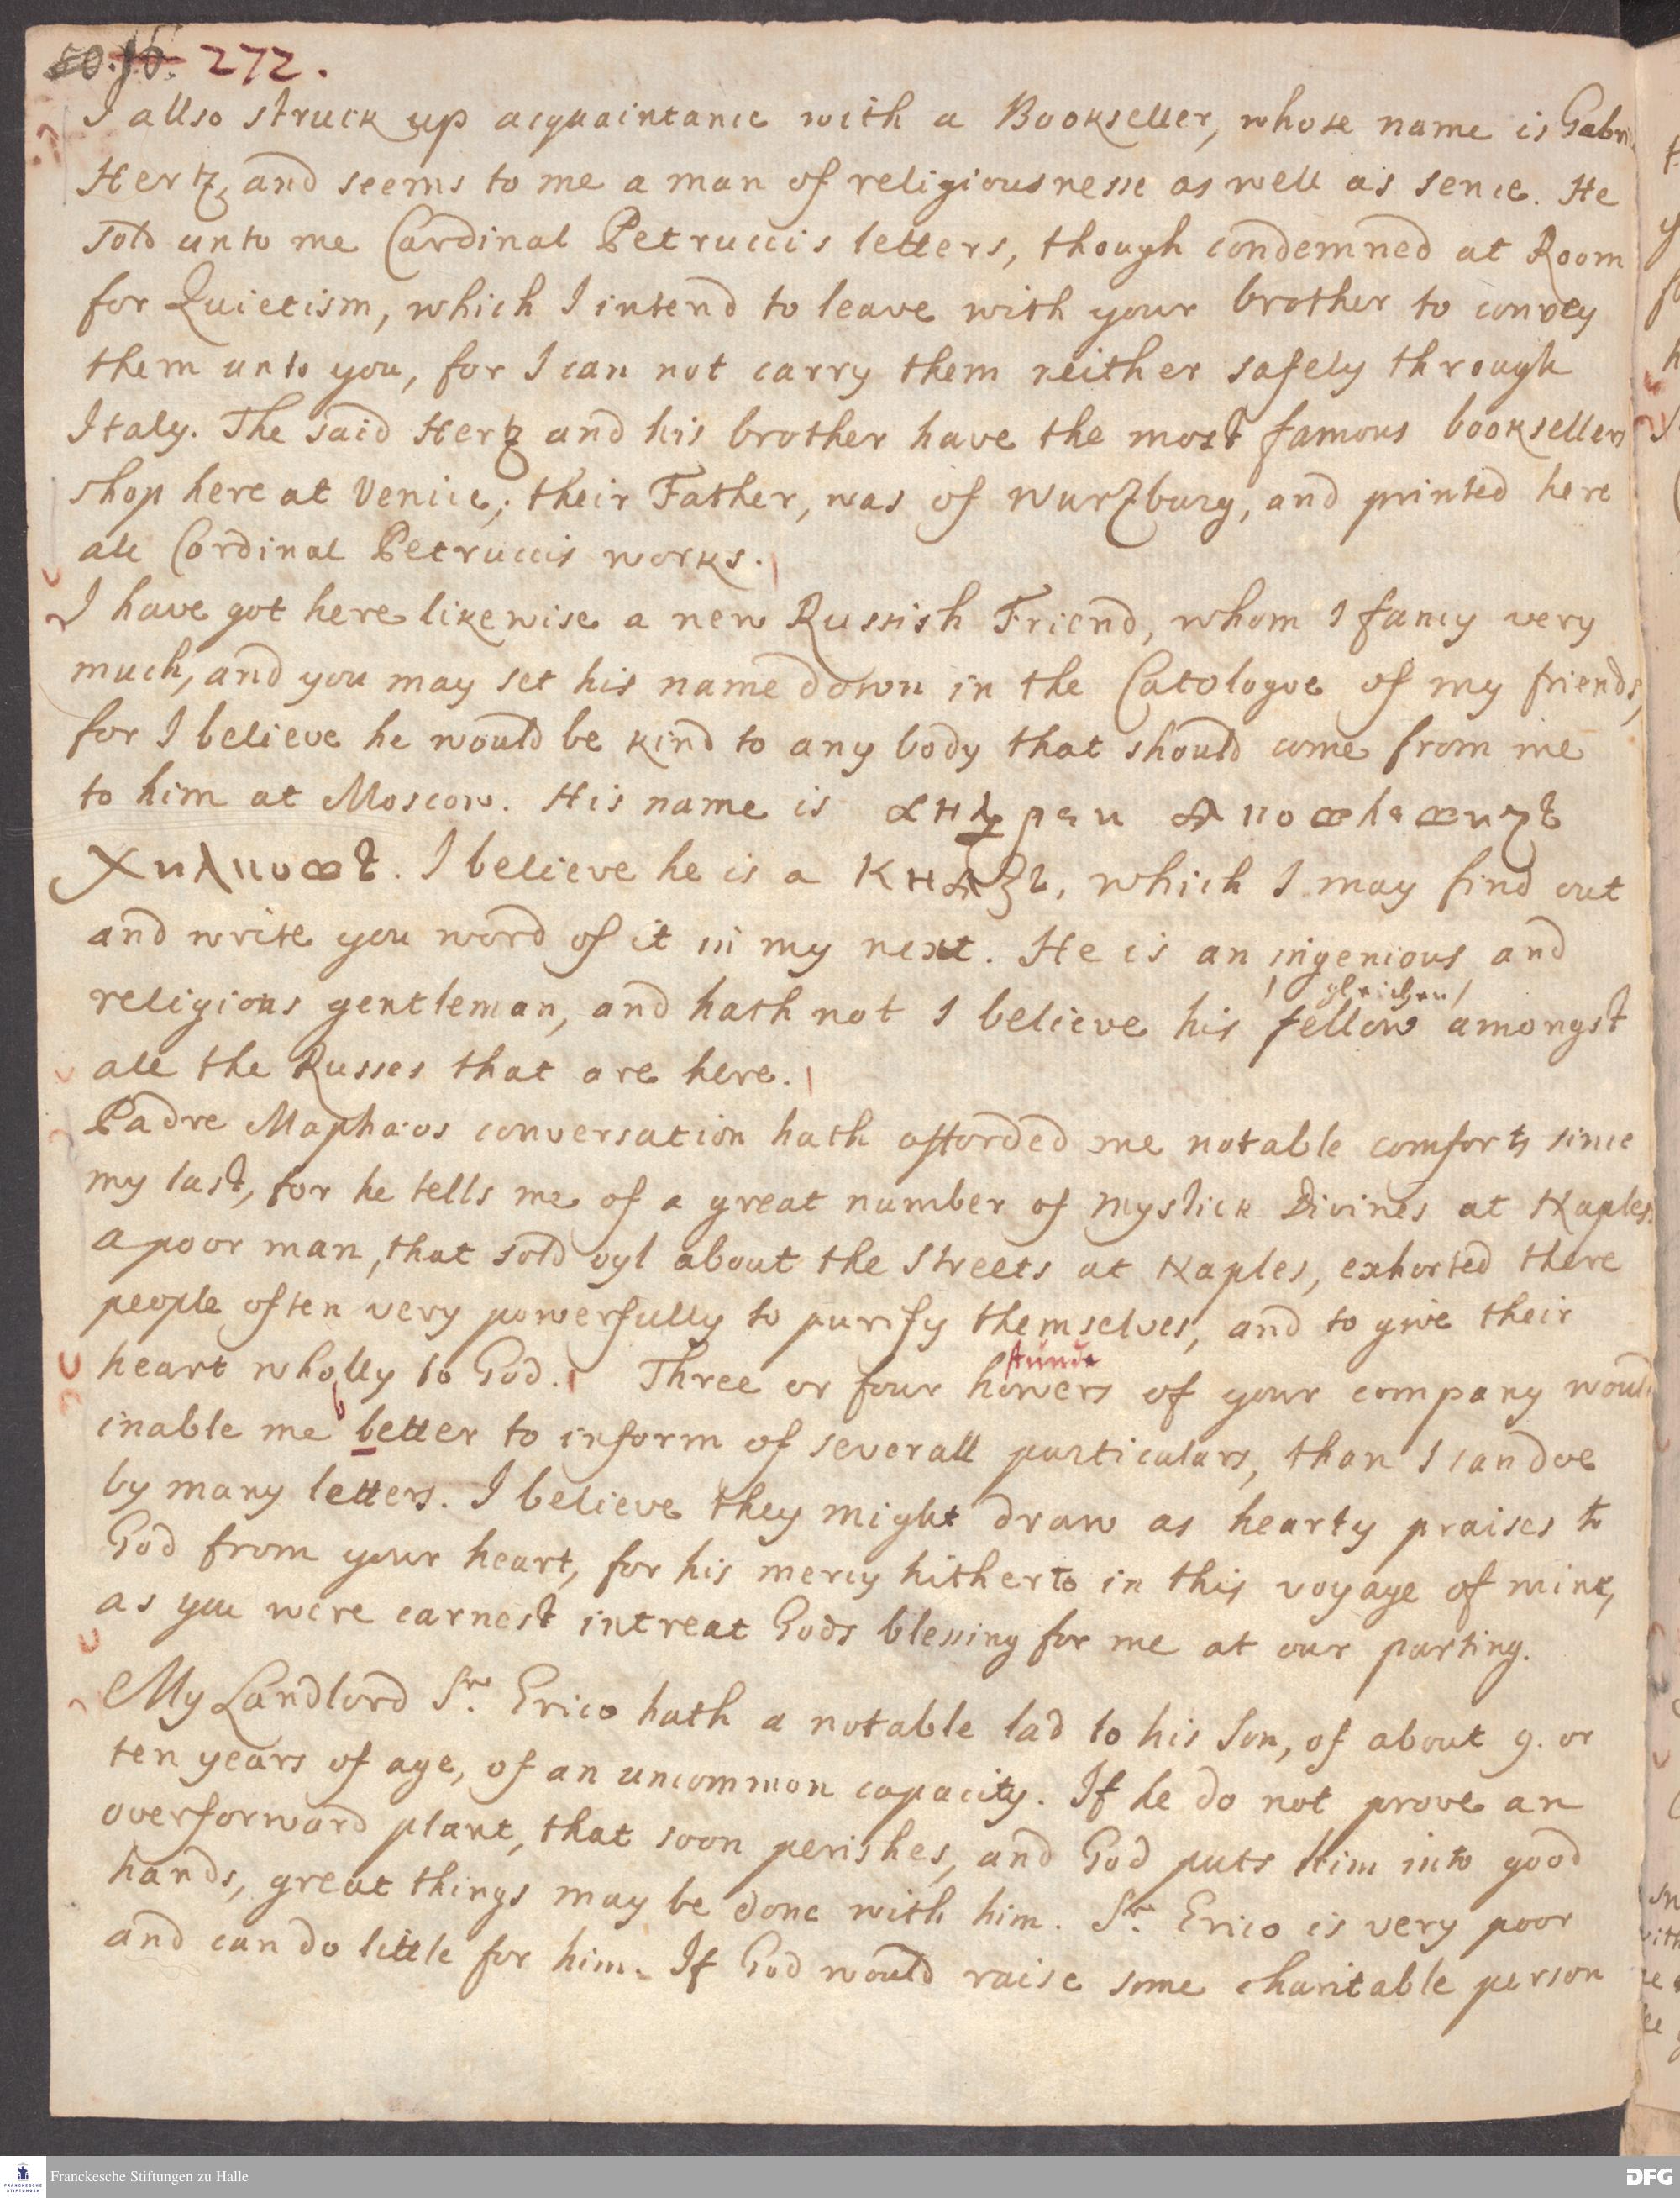 272.
I allso struck up acquaintance with a Bookseller, whose name is Gabri
Hertz, and seems to me a man of religiousnesse as well as sence. He
sold unto me Cardinal Petruccis letters, though condemned at Room
for Quietism, which I intend to leave with your brother to convey
them unto you, for I can not carry them neither safely through
Italy. The said Hertz and his brother have the most famous booksellers
shop here at Venice; their Father, was of Wurzburg, and printed here
all Cardinal Petruccis works.
I have got here likewise a new Russish Friend, whom I fancy very
much, and you may set his name down in the Catologue of my friends,
for I believe he would be kind to any body that should come from me
to him at Moscow. His name is
. I believe he is a Кнѧзь, which I may find out
and write you word of it in my next. He is an ingenious and
gleichen
religious gentleman, and hath not I believe his fellow amongst
all the Russes that are here.
Padre Maphæos conversation hath afforded me notable comforts since
my last, for he tells me of a great number of Mystick Divines at Naples.
A poor man, that sold oyl about the streets at Naples, exhorted there
people often very powerfully to purify themselves, and to give their
stunde
heart wholly to God. Three or four howers of your company would
inable me better to inform of severall particulars, than I can doe
by many letters. I believe they might draw as hearty praises to
God from your heart, for his mercy hitherto in this voyage of mine,
as you were earnest intreat Gods blessing for me at our parting.
My Landlord Sr. Erico hath a notable lad to his Son, of about 9. or
ten years of age, of an uncommon capacity. If he do not prove an
overforward plant, that soon perishes, and God puts him into good
hands, great things may be done with him. Sr. Erico is very poor
and can do little for him. If God would raise some charitable person
Franckesche Stiftungen zu Halle
DFG